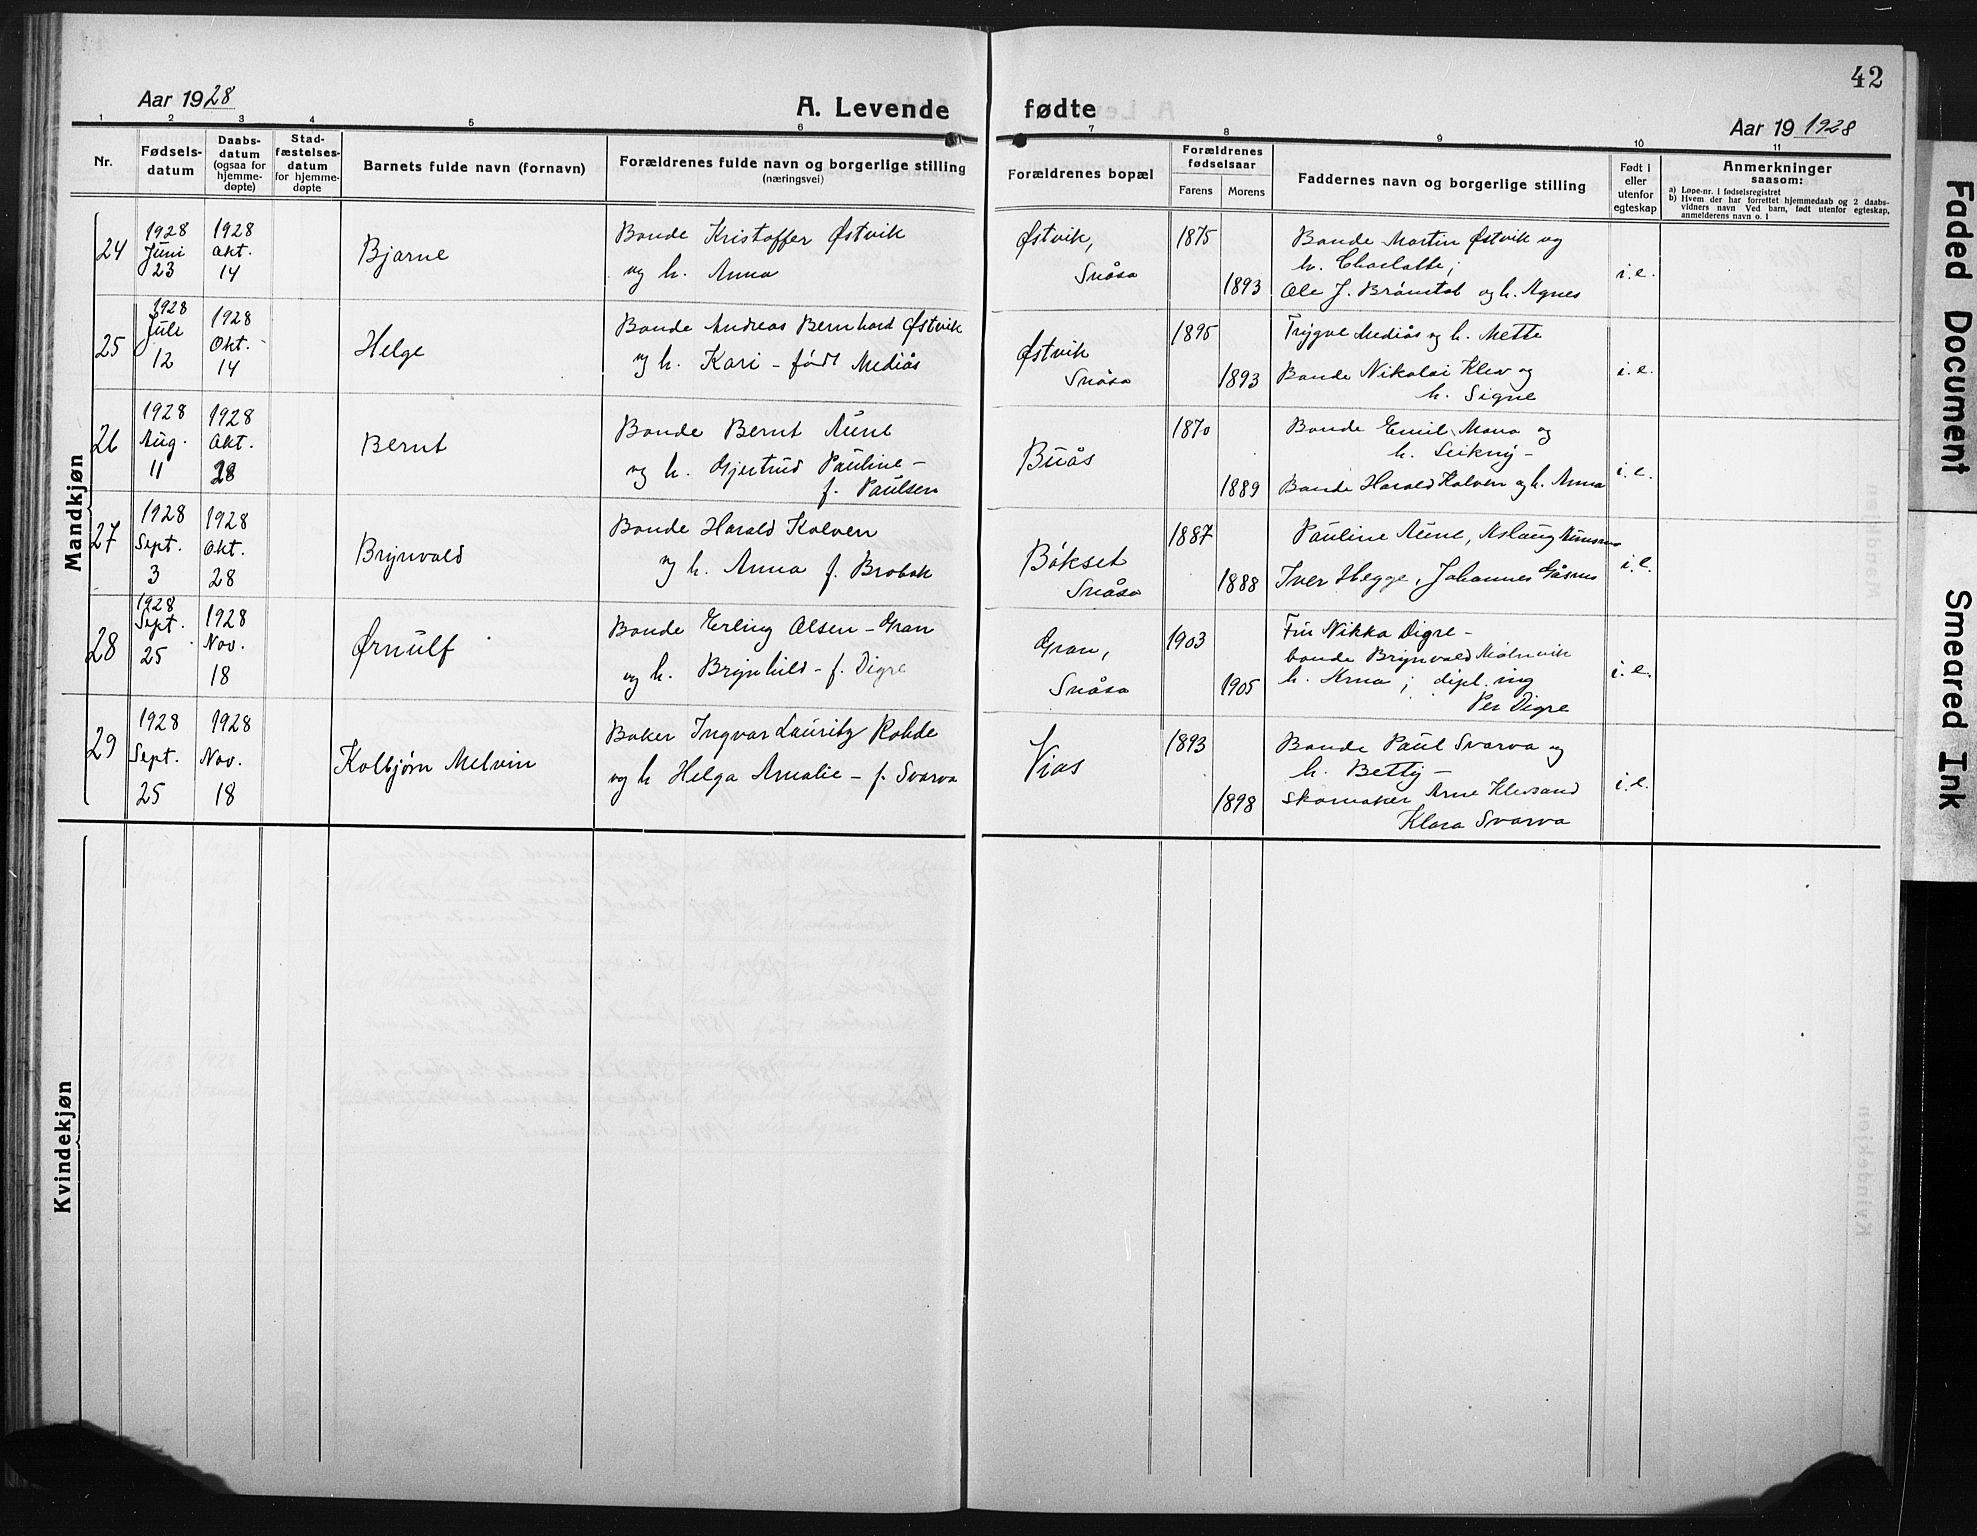 42
Aar 1928
A. Levende fødte
Aar 19 1928
1 2 3 4 5 6 7 8 9 10 11
Nr.
Fødsels-
datum
Daabs-
datum
(ogsaa for
hjemme-
døpte)
Stad-
fæstelses-
datum
for hjemme-
døpte
Barnets fulde navn (fornavn)
Forældrenes fulde navn og borgerlige stilling
(næringsvei)
Forældrenes bopæl
Forældrenes
fødselsaar
Farens Morens
Faddernes navn og borgerlige stilling
Født i
eller
utenfor
egteskap
Anmerkninger
saasom:
a) Løpe-nr. i fødselsregistret
b) Hvem der har forrettet hjemmedaab og 2 daabs-
vidners navn Ved barn, født utenfor egteskap,
anmelderens navn o. l
Mandkjøn
24
1928
Juni
23
1928
Okt.
14
Bjarne
Bonde Kristoffer Østvik
og h. Anna
Østvik,
Snåsa
1875
1893
Bonde Martin Østvik og
h. Charlotte;
Ole J. Brønstad og h. Agnes
i.e.
25
1928
Juli
12
1928
Okt.
14
Helge
Bonde Andreas Bernhard Østvik
og h. Kari - født Mediås
Østvik
Snåsa
1895
1893
Trygve Mediås og h. Mette
Bonde Nikolai Klev og
h. Signe
i.e.
26
1928
Aug.
11
1928
Okt.
28
Bernt
Bonde Bernt Aune
og h. Gjertrud Pauline -
f. Paulsen
Buås
1870
1889
Bonde Emil Mona og
h. -
Bonde Harald Kolven og h. Anna
i.e.
27
1928
Sept.
3
1928
Okt.
28
Brynvald
Bonde Harald Kolven
og h. Anna f. Brobak
Bøkset
Snåsa
1887
1888
Pauline Aune, Aslaug
Iver Hegge, Johannes Gåsnes
i.e.
28
1928
Sept.
25
1928
Nov.
18
Ørnulf
Bonde Erling Olsen - Gran
og h. Brynhild - f. Digre
Gran,
Snåsa
1903
1905
Fru Nikka Digre -
bonde Brynvald
h. ; dipl. ing
Per Digre
i.e.
29
1928
Sept.
25
1928
Nov.
18
Kolbjørn Melvin
Baker Ingvar Lauritz Rohde
og h Helga Amalie - f. Svarva
Vias
1893
1898
Bonde Paul Svarva og
h. Betty -
Skomaker Arne Klevsand
Klara Svarva
i.e.
Kvindekjøn
Faded Document
Smeared Ink